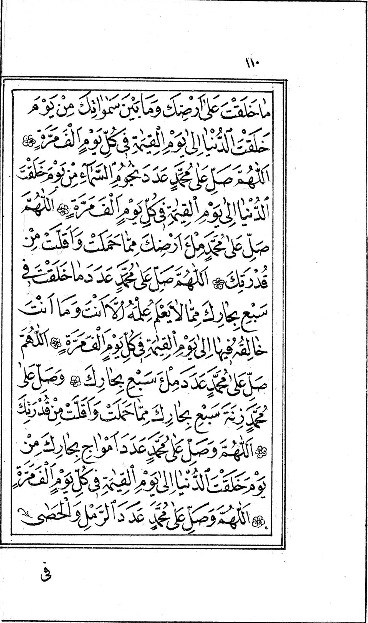 ١١٠
مَا خَلَقْتَ عَلَى أَرْضِكَ وَمَا بَيْنَ سَمٰوَاتِكَ مِنْ يَوْمِ
خَلَقْتَ الدُّنْيَا اِلٰى يَوْمِ الْقِيٰمَةِ فِى كُلِّ يَوْمٍ اَلْفَ مَرَّةٍ
اَللّٰهُمَّ صَلِّ عَلٰى مُحَمَّدٍ عَدَدَ نُجُومِ السَّمَآءِ مِنْ يَوْمِ خَلَقْتَ
الدُّنْيَا اِلٰى يَوْمِ الْقِيٰمَةِ فِى كُلِّ يَوْمٍ اَلْفَ مَرَّةٍ اَللّٰهُمَّ
صَلِّ عَلٰى مُحَمَّدٍ مِلْءَ اَرْضِكَ مِمَّا حَمَلَتْ وَاَقَلَّتْ مِنْ
قُدْرَتِكَ اَللّٰهُمَّ صَلِّ عَلٰى مُحَمَّدٍ عَدَدَ مَا خَلَقْتَ فِى
سَبْعِ بِحَارِكَ مِمَّا لَا يَعْلَمُ عِلْمَهُ اِلَّا اَنْتَ وَمَا اَنْتَ
خَالِقُهُ فِيهَا اِلٰى يَوْمِ الْقِيٰمَةِ فِى كُلِّ يَوْمٍ اَلْفَ مَرَّةٍ اَللّٰهُمَّ
صَلِّ عَلٰى مُحَمَّدٍ عَدَدَ مِلْءِ سَبْعِ بِحَارِكَ وَصَلِّ عَلٰى
مُحَمَّدٍ زِنَةَ سَبْعِ بِحَارِكَ مِمَّا حَمَلَتْ وَاَقَلَّتْ مِنْ قُدْرَتِكَ
اَللّٰهُمَّ وَصَلِّ عَلٰى مُحَمَّدٍ عَدَدَ اَمْوَاجِ بِحَارِكَ مِنْ
يَوْمِ خَلَقْتَ الدُّنْيَا اِلٰى يَوْمِ الْقِيٰمَةِ فِى كُلِّ يَوْمٍ اَلْفَ مَرَّةٍ
اَللّٰهُمَّ وَصَلِّ عَلٰى مُحَمَّدٍ عَدَدَ الرَّمْلِ وَالْحَصٰى
فى